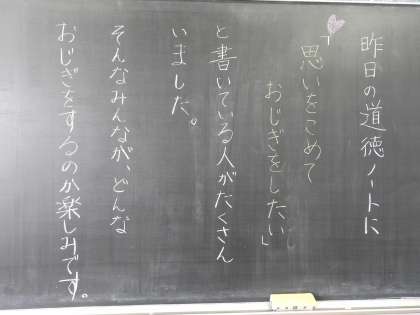 昨日の道徳ノートに
「思いをこめて
おじぎをしたい」
と書いている人がたくさん
いました。
そんなみんなが、どんな
おじぎをするのか楽しみです。